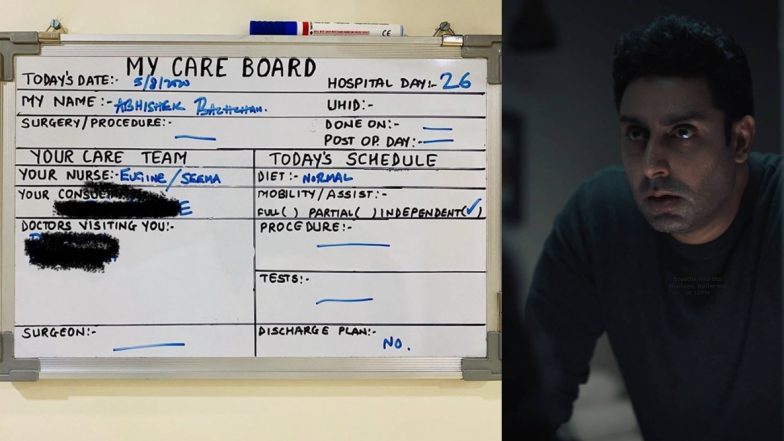 MY CARE BOARD
TODAY'S DATE:- 5/8/2020
HOSPITAL DAY:- 26
MY NAME:- ABHISHEK BACHCHAN.
UHID:-
SURGERY/PROCEDURE:-
DONE ON:-
POST OP. DAY:-
YOUR CARE TEAM
TODAY'S SCHEDULE
YOUR NURSE:- EUGINE/SEEMA
DIET:- NORMAL
YOUR
MOBILITY/ASSIST:-
FULL( ) PARTIAL( ) INDEPENDENT(✓)
DOCTORS VISITING YOU:-
PROCEDURE:-
TESTS:-
SURGEON:-
DISCHARGE PLAN:-
NO.
CE